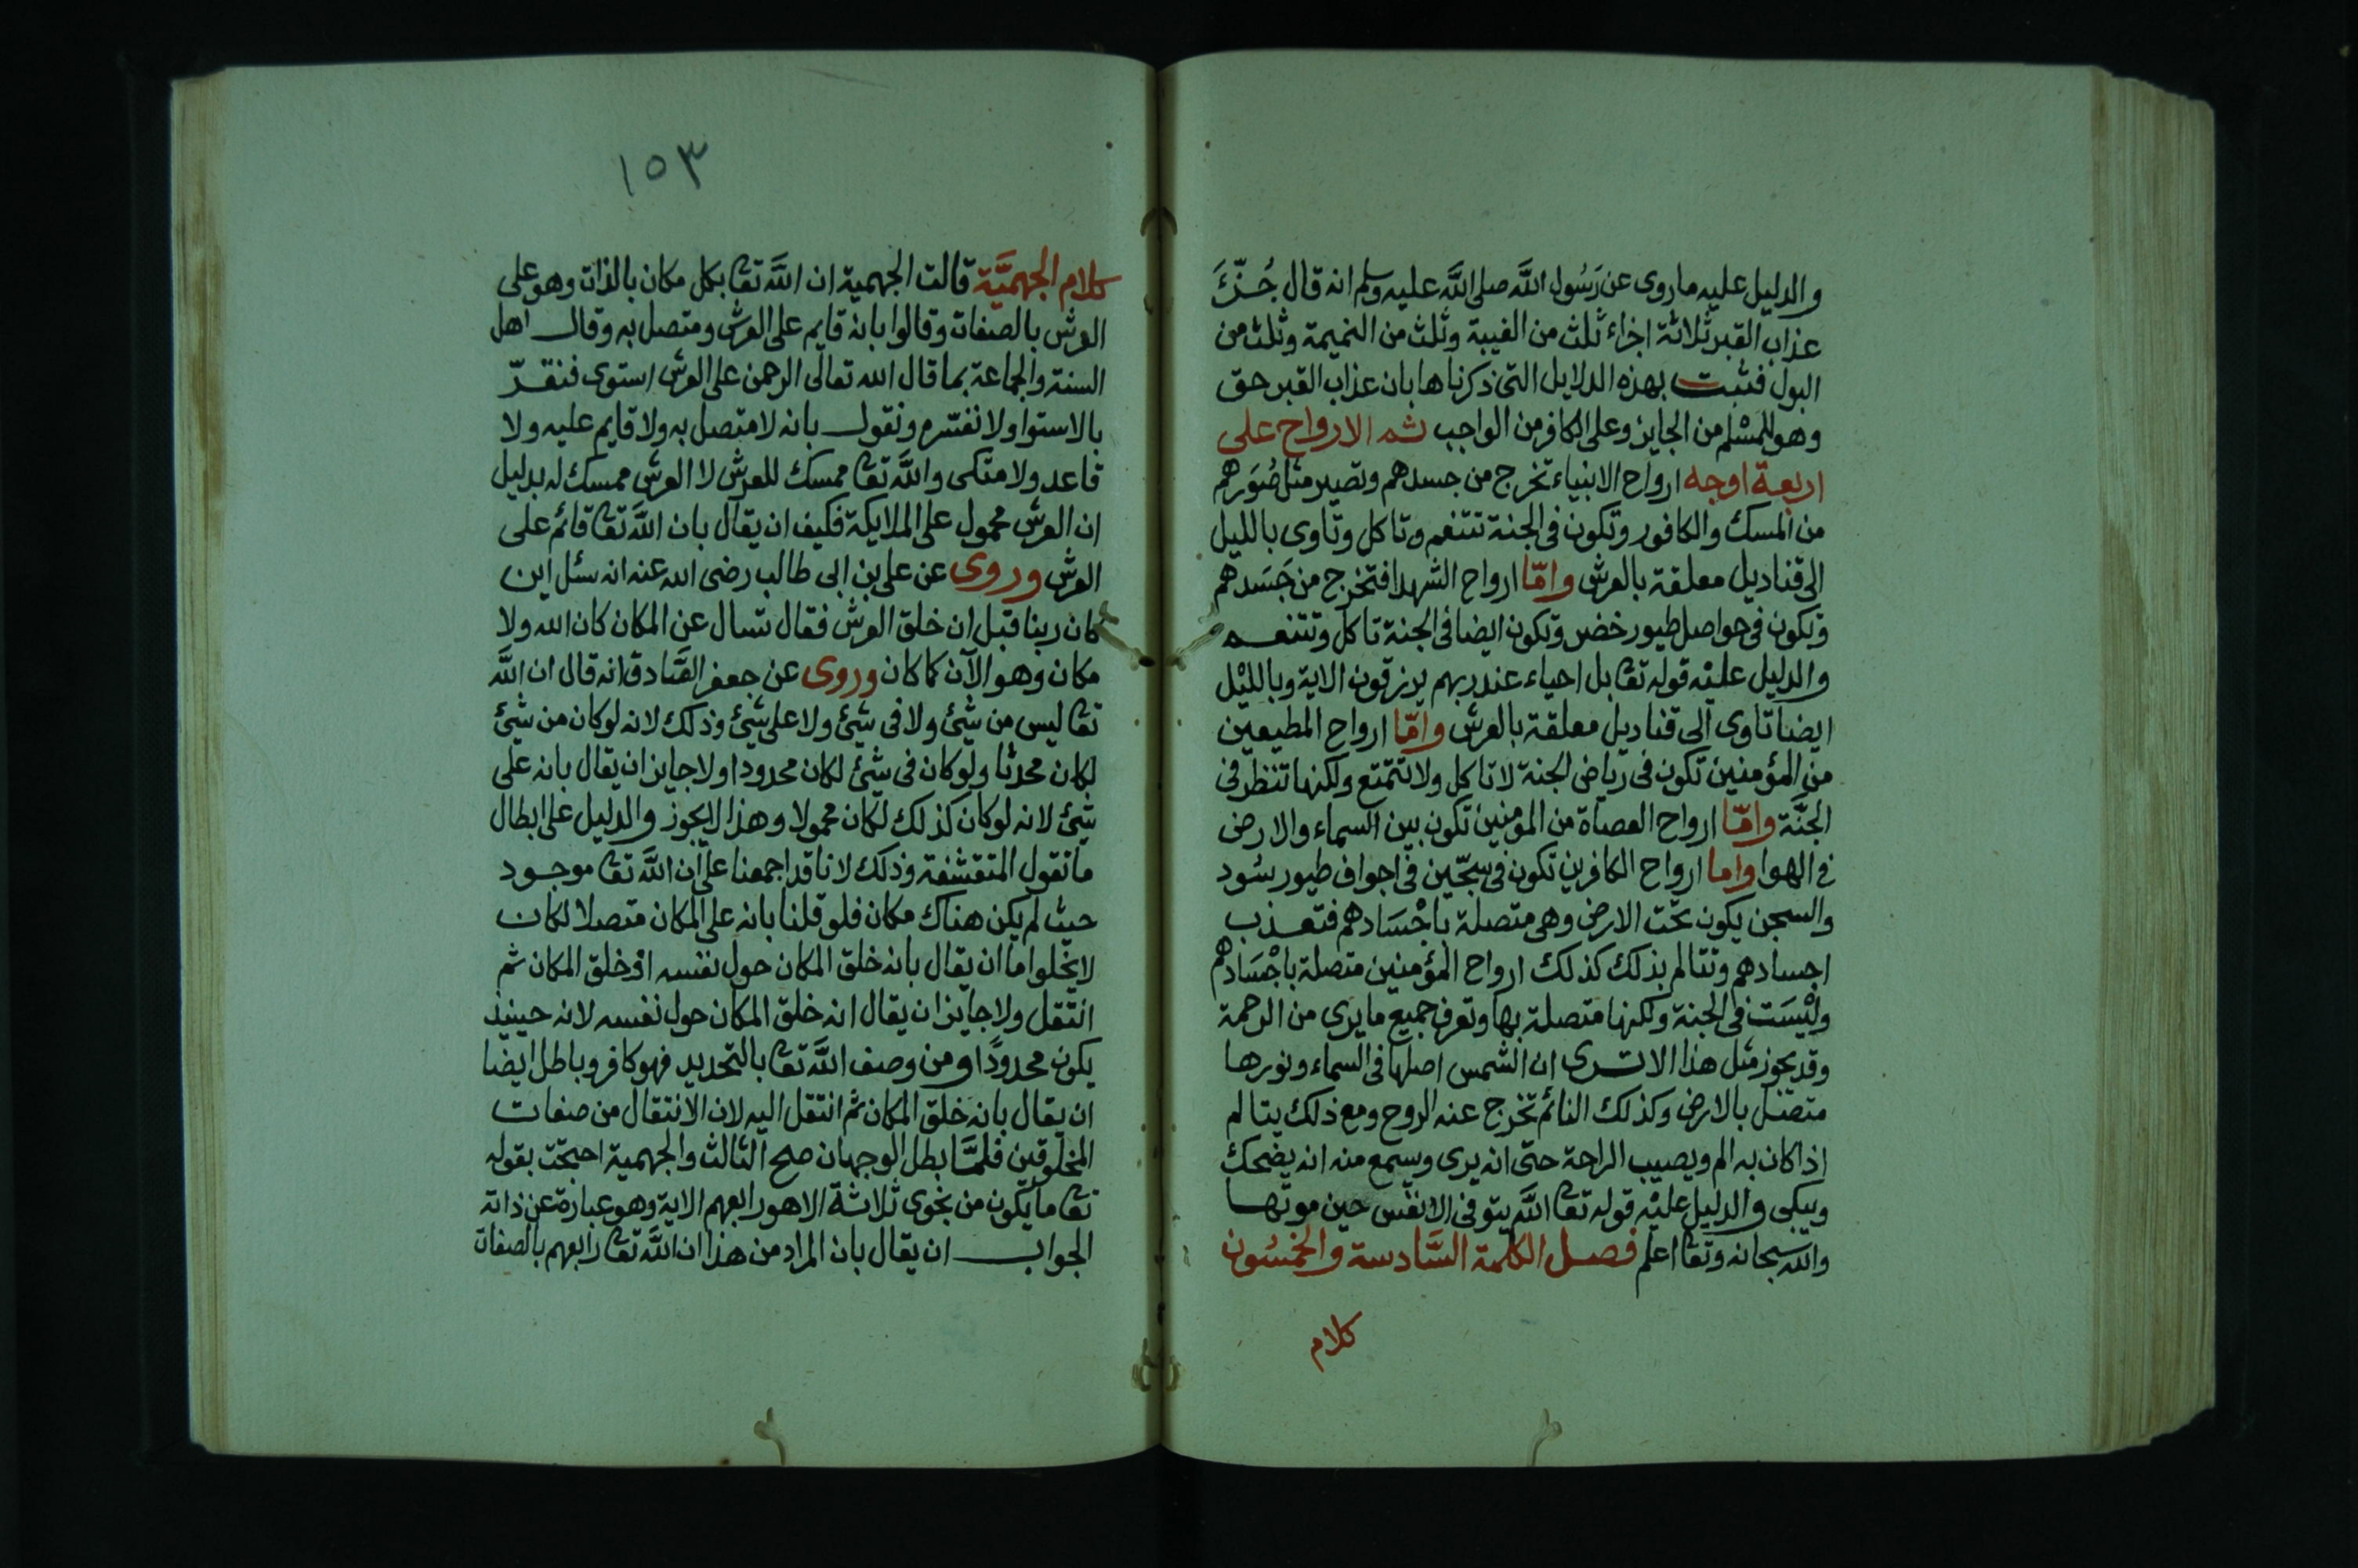 والدليل عليه ماروى عن رَسُول اللَّه صلى اللَّه عليه وسلم انه قال جُزّءَ
عذاب القبر ثلاثة اجزاء ثلث من الغيبة وثلث من النميمة وثلث من
البول فثبت بهذه الدلايل التى ذكرناها بان عذاب القبر حق
وهو للمسْلم من الجايز وعلى الكافر من الواجب ثم الارواح على
اربعة اوجه ارواح الانبياء تخرج من جسدهم وتصير مثل صُوَرهم
من المسك والكافور وتكون فى الجنة تتنعم وتاكل وتاوى بالليل
الى قناديل معلقة بالعرش وامّا ارواح الشهدا فتخرج من جَسَدهم
وتكون فى حواصل طيور خضر وتكون ايضا فى الجنة تاكل وتتنعم
والدليل عليْه قوله تعا بل احياء عند ربهم يرزقون الاية وبالليْل
ايضا تاوى الى قناديل معلقة بالعرش وامّا ارواح المطيعين
من المؤمنين تكون فى رياض الجنة لا تاكل ولا تتمتع ولكنها تنظر فى
الجنَّة وامّا ارواح العصاة من المؤمنين تكون بين السماء والارض
فى الهوا واما ارواح الكافرين تكون فى سجّين فى اجواف طيور سُود
والسجن يكون تحت الارض وهى متصلة باجْسَادهم فتعذب
اجسادهم وتتالم بذلك كذلك ارواح المؤمنين متصلة باجْسَادهم
وليْسَت فى الجنة ولكنها متصلة بها وتعرف جميع ما يرى من الرحمة
وقد يجوز مثل هذا الا ترى ان الشمس اصلها فى السماء ونورها
متصل بالارض وكذلك النائم تخرج عنه الروح ومع ذلك يتالم
اذا كان به الم ويصيب الراحة حتى انه يرى ويسمع منه انه يضحك
ويبكى والدليل عليْه قوله تعا اللَّه يتوفى الانفس حين موتها
والله سبحانه وتعا اعلم فصل الكلمة السَّادسة والخمسُون
كلام
١٥٣
كلام الجهميَّة قالت الجهمية ان اللَّه تعا بكل مكان بالذات وهو على
العرش بالصفات وقالوا بانه قايم على العرش ومتصل به وقال اهل
السنة والجماعة بما قال الله تعالى الرحمن على العرش استوى فنقرّ
بالاستوا ولا نفسّره ونقول بانه لا متصل به ولا قايم عليه ولا
قاعد ولا متكى واللَّه تعا ممسك للعرش لا العرش ممسك له بدليل
ان العرش محمول على الملايكة فكيف ان يقال بان اللَّه تعا قائم على
العرش وروى عن على بن ابى طالب رضى الله عنه انه سئل اين
كان ربنا قبل ان خلق العرش فقال تسال عن المكان كان الله ولا
مكان وهو الآن كما كان وروى عن جعفر الصَّادق انه قال ان اللَّه
تعا ليس من شئ ولا فى شئ ولا على شئ وذلك لانه لو كان من شئ
لكان محدثا ولو كان فى شئ لكان محدودا ولا جايز ان يقال بانه على
شئ لانه لو كان كذلك لكان محمولا وهذا لا يجوز والدليل على ابطال
ما تقول المتقشفة وذلك لانا قد اجمعنا على ان اللَّه تعا موجود
حيث لم يكن هناك مكان فلو قلنا بانه على المكان متصلا لكان
لا يخلوا اما ان يقال بانه خلق المكان حول نفسه او خلق المكان ثم
انتقل ولا جايز ان يقال انه خلق المكان حول نفسه لانه حينيذ
يكون محدودًا ومن وصف اللَّه تعا بالتحديد فهو كافر وباطل ايضا
ان يقال بانه خلق المكان ثم انتقل اليه لان الانتقال من صفات
المخلوقين فلمَّا بطل الوجهان صح الثالث والجهمية احتجّت بقوله
تعا ما يكون من نجوى ثلاثة الا هو رابعهم الاية وهو عبارة عن ذاته
الجواب ان يقال بان المراد من هذا ان اللَّه تعا رابعهم بالصفات